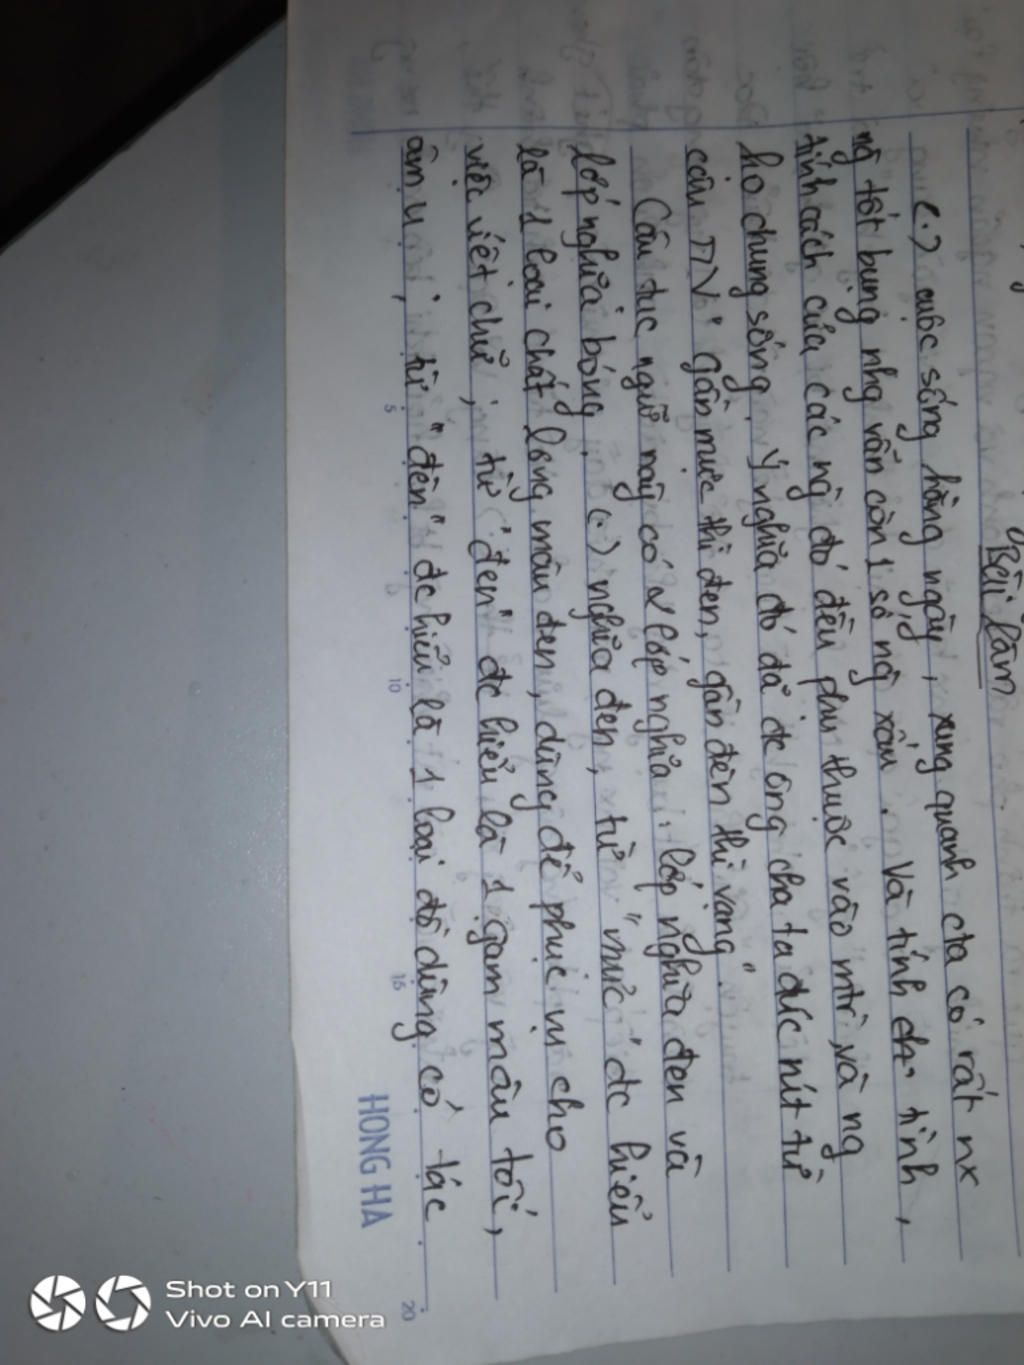 Bài làm
(.) cuộc sống hằng ngày, xung quanh cta có rất nx
ng tốt bụng nhg vẫn còn 1 số ng xấu. Và tính
tính cách của các ng đó đều phụ thuộc vào mtr và ng
họ chung sống. Ý nghĩa đó đã đc ông cha ta đúc rút từ
câu TN "gần mực thì đen, gần đèn thì rạng".
Câu tục ngữ này có 2 lớp nghĩa: lớp nghĩa đen và
lớp nghĩa bóng. (.) nghĩa đen, từ "mực" đc hiểu
là 1 loại chất lỏng màu đen, dùng để phục vụ cho
việc viết chữ; từ "đen" đc hiểu là 1 gam màu tối,
âm u; từ "đèn" đc hiểu là 1 loại đồ dùng có tác
5
10
15
20
HONG HA
Shot on Y11
Vivo AI camera